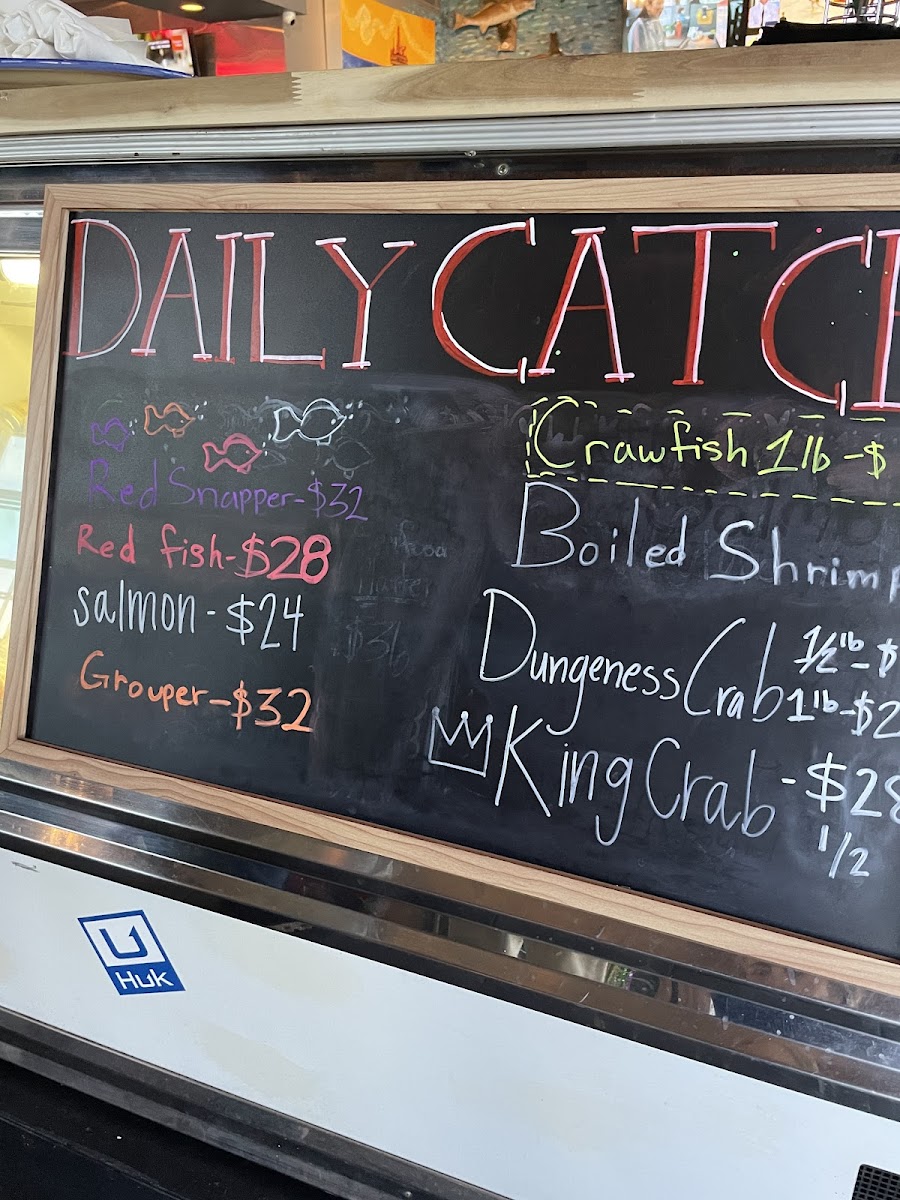 DAILY CATCH
Red Snapper-$32
Red fish-$28
salmon-$24
Grouper-$32
Crawfish 1lb-$
Boiled Shrimp
Dungeness Crab 1/2 lb-$
1lb-$2
King Crab-$28
1/2
U
HUK